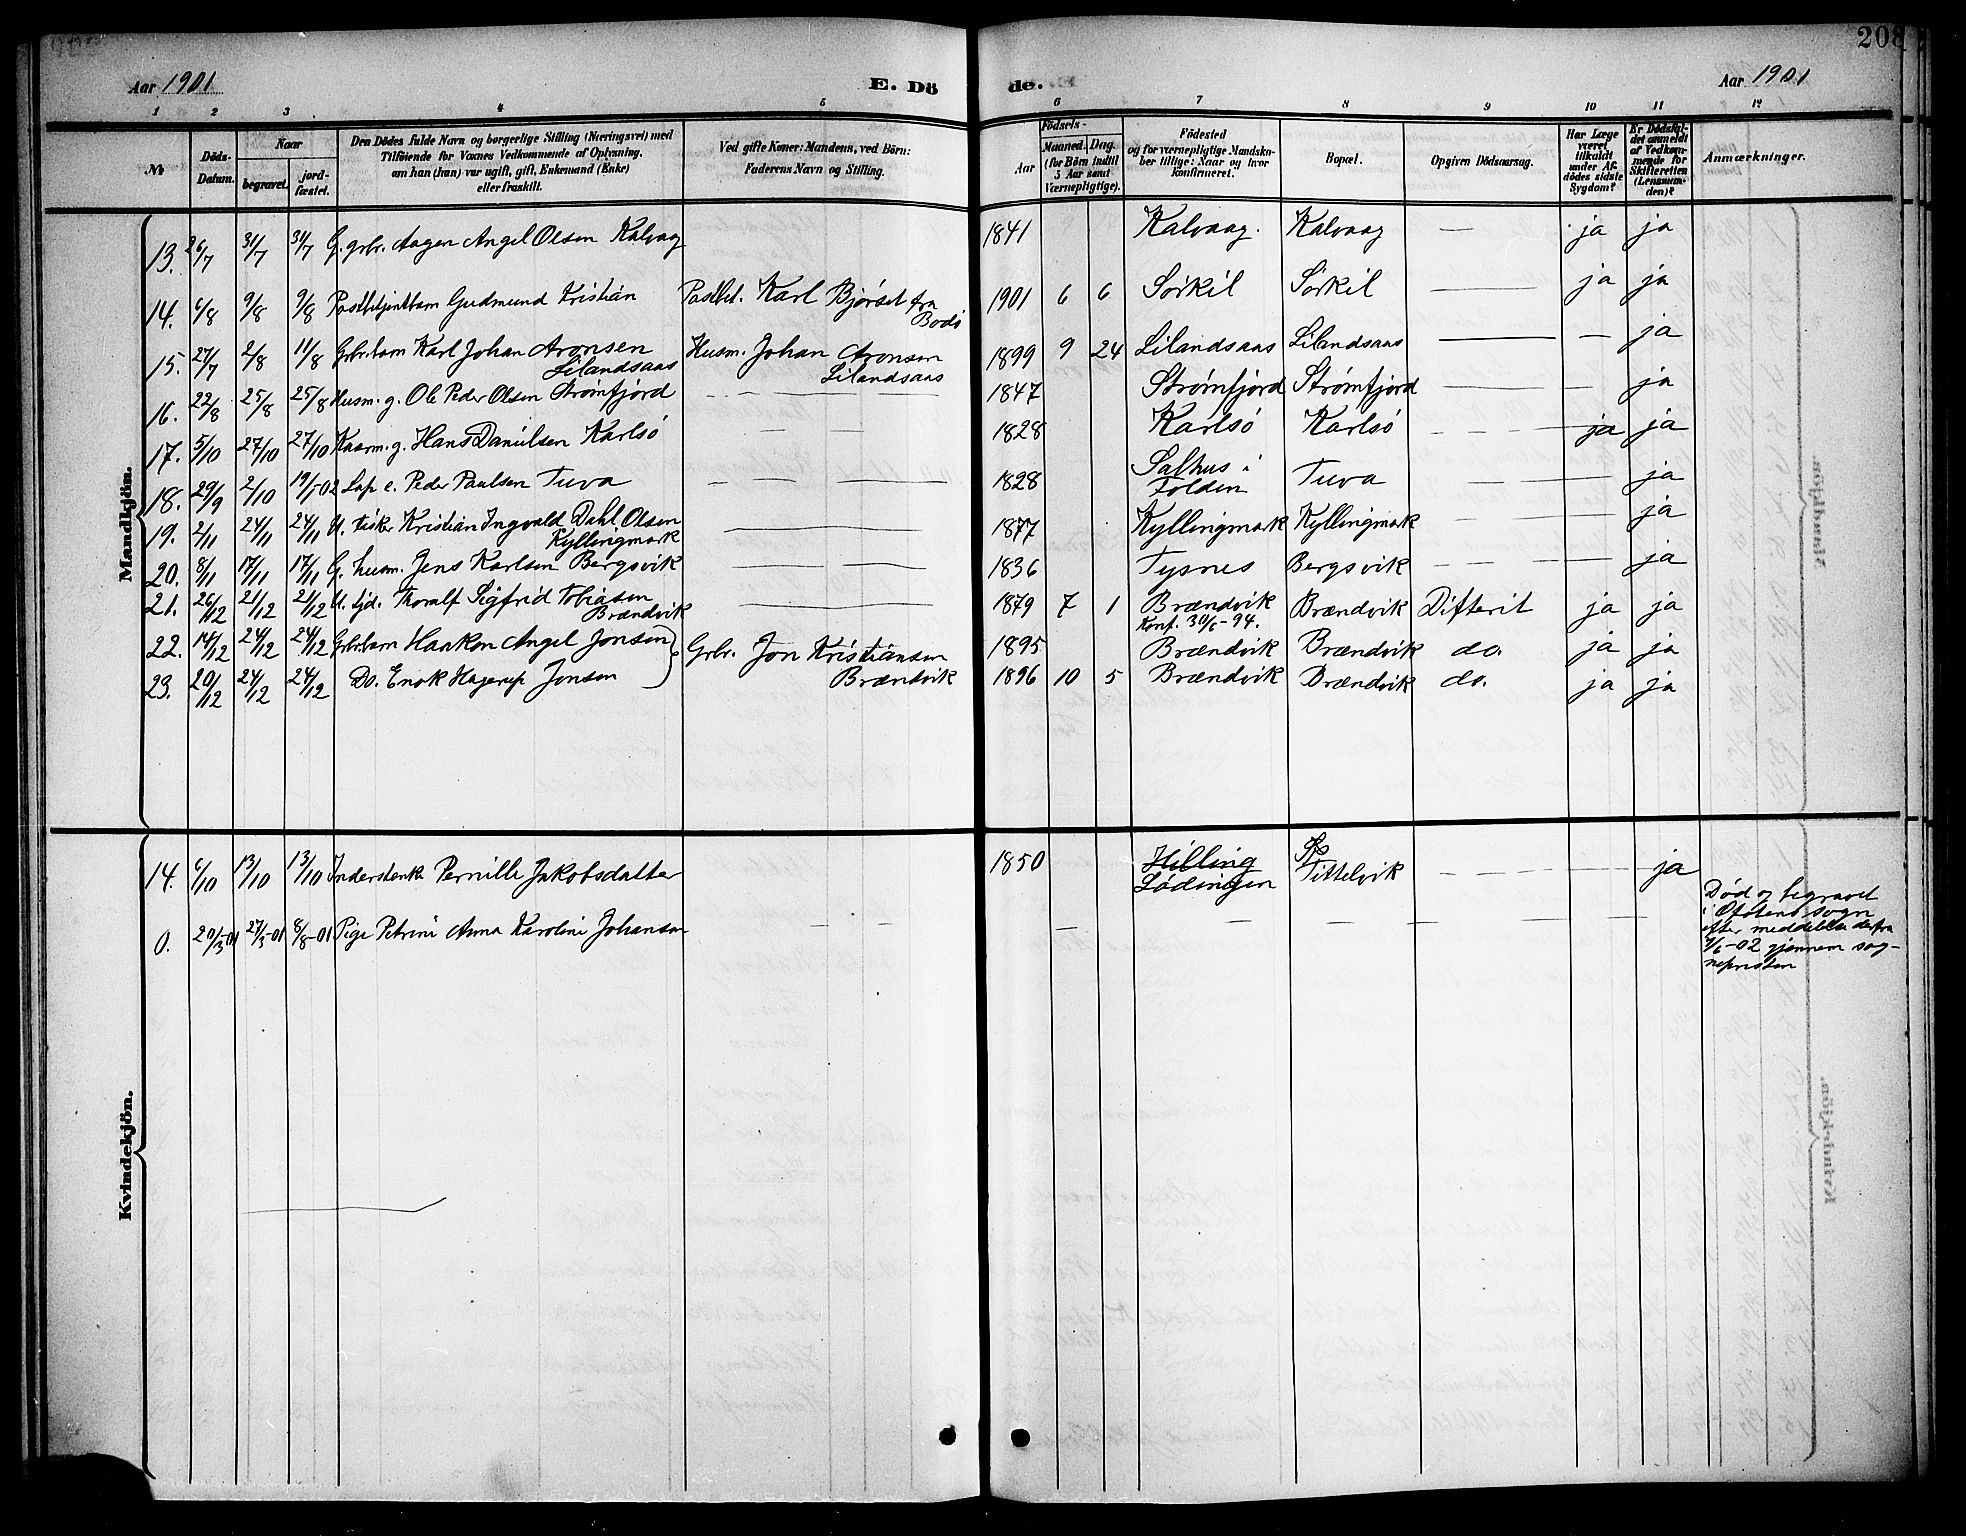 208
Aar 1901 E. Dö de. Aar 1901
1 2 3 4 5 6 7 8 9 10 11 12
№
Döds-Datum.
Naar
begravet.
jord-fæstet.
Den Dödes fulde Navn og borgerlige Stilling (Næringsvei) med
Tilföiende for Voxnes Vedkommende af Oplysning.
om han (hun) var ugift, gift, Enkemand (Enke)
eller fraskilt.
Ved gifte Koner: Mandens, ved Börn:
Faderens Navn og Stilling.
Födsels-
Aar
Maaned. Dag.
(for Börn indtil
5 Aar samt
Værnepligtige).
Födested
og for værnepligtige Mandska-
ber tillige: Naar og hvor
konfirmeret.
Bopæl.
Opgiven Dödsaarsag.
Har Læge
været
tilkaldt
under Af-
dödes sidste
Sygdom?
Er Dödsfal-
det anmeldt
af Vedkom-
mende for
Skifteretten
(Lensman-
den)?
Anmærkninger.
Mandkjön.
13. 26/7 31/7 31/7 G. grbr. Aagen Angel Olsen Kalvaag 1841 Kalvaag. Kalvaag — ja ja
14. 6/8 9/8 9/8 Postbetjentbarn Gudmund Kristian Postbet. Karl Bjørset fra Bodø 1901 6 6 Sørkil Sørkil — ja ja
15. 27/7 2/8 11/8 Grbr.barn Karl Johan Aronsen Lilandsaas Husm. Johan Aronsen Lilandsaas 1899 9 24 Lilandsaas Lilandsaas — — ja
16. 22/8 25/8 25/8 Husm. g. Ole Peder Olsen Strømfjord — 1847 Strømfjord Strømfjord — — ja
17. 5/10 27/10 27/10 Kaarm. g. Hans Danielsen Karlsø — 1828 Karlsø Karlsø — ja ja
18. 29/9 2/10 19/1-02 Lap e. Peder Paulsen Tuva — 1828 Salhus i Folden Tuva — ja
19. 2/11 24/11 24/11 U. fisker Kristian Ingvald Dahl Olsen Kyllingmark — 1877 Kyllingmark Kyllingmark — — ja
20. 8/11 17/11 17/11 G. husm. Jens Karlsen Bergsvik — 1836 Tysnes Bergsvik — — ja
21. 26/12 21/12 21/12 U. tjd. Thoralf Sigfrid Tobiasen Brændvik — 1879 7 1 Brændvik Konf. 30/6-94. Brændvik Difterit ja ja
22. 14/12 24/12 24/12 Grbr.barn Haakon Angel Jonsen Grbr. Jon Kristiansen Brændvik 1895 Brændvik Brændvik do. ja ja
23. 20/12 24/12 24/12 Do. Enok Hagerup Jonsen 1896 10 5 Brændvik Brændvik do. ja ja
Kvindekjön.
14. 6/10 13/10 13/10 Inderstenke Pernille Jakobsdatter 1850 Hilling Lødingen Tittelvik — ja
0. 20/3-01 27/3-01 8/8-01 Pige Petrine Anna Karoline Johansen — — — — — —
Død og begravet
i Ofotens sogn
efter meddelelse derfra
/6-02 gjennem sog-
nepresten